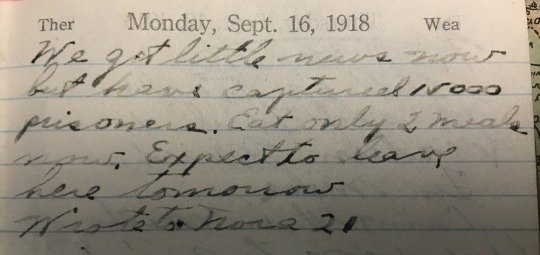 Ther Monday, Sept. 16, 1918 Wea
We get little news now
but have captured 15000
prisoners. Eat only 2 meals
now. Expect to leave
here tomorrow
Wrote to Nora 21